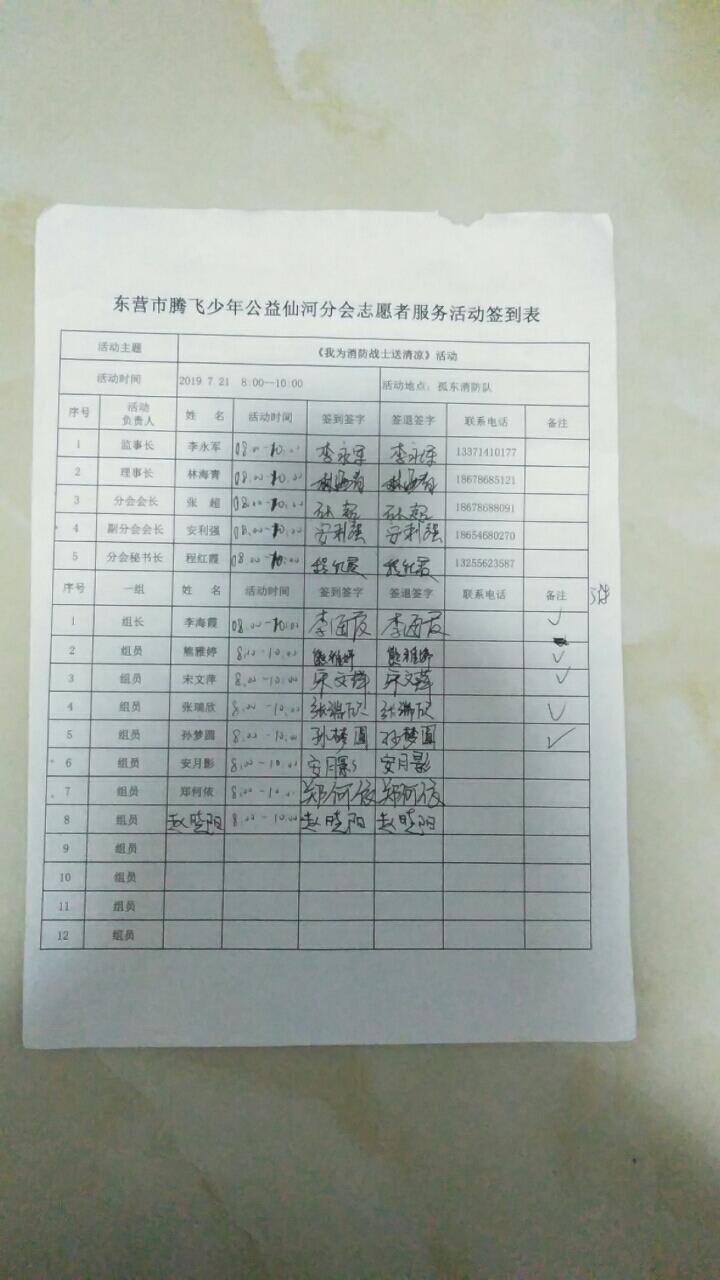 东营市腾飞少年公益仙河分会志愿者服务活动签到表
活动主题 《我为消防战士送清凉》活动
活动时间 2019 7 21 8:00--10:00 活动地点：孤东消防队
序号 活动负责人 姓 名 活动时间 签到签字 签退签字 联系电话 备注
1 监事长 李永军 08.00-10.00 李永军 李永军 13371410177
2 理事长 林海青 08.00-10.00 林海青 林海青 18678685121
3 分会会长 张 超 08.00-10.00 张超 张超 18678688091
4 副分会会长 安利强 08.00-10.00 安利强 安利强 18654680270
5 分会秘书长 程红霞 08.00-10.00 程红霞 程红霞 13255623587
序号 一组 姓 名 活动时间 签到签字 签退签字 联系电话 备注
1 组长 李海霞 08.00-10.00 李海霞 李海霞 ✓
2 组员 熊雅婷 8.00-10.00 熊雅婷 熊雅婷 ✓
3 组员 宋文萍 8.00-10.00 宋文萍 宋文萍 ✓
4 组员 张瑞欣 8.00-10.00 张瑞欣 张瑞欣 ✓
5 组员 孙梦圆 8.00-10.00 孙梦圆 孙梦圆 ✓
6 组员 安月影 8.00-10.00 安月影 安月影
7 组员 郑何依 8.00-10.00 郑何依 郑何依
8 组员 赵晓阳 8.00-10.00 赵晓阳 赵晓阳
9 组员
10 组员
11 组员
12 组员